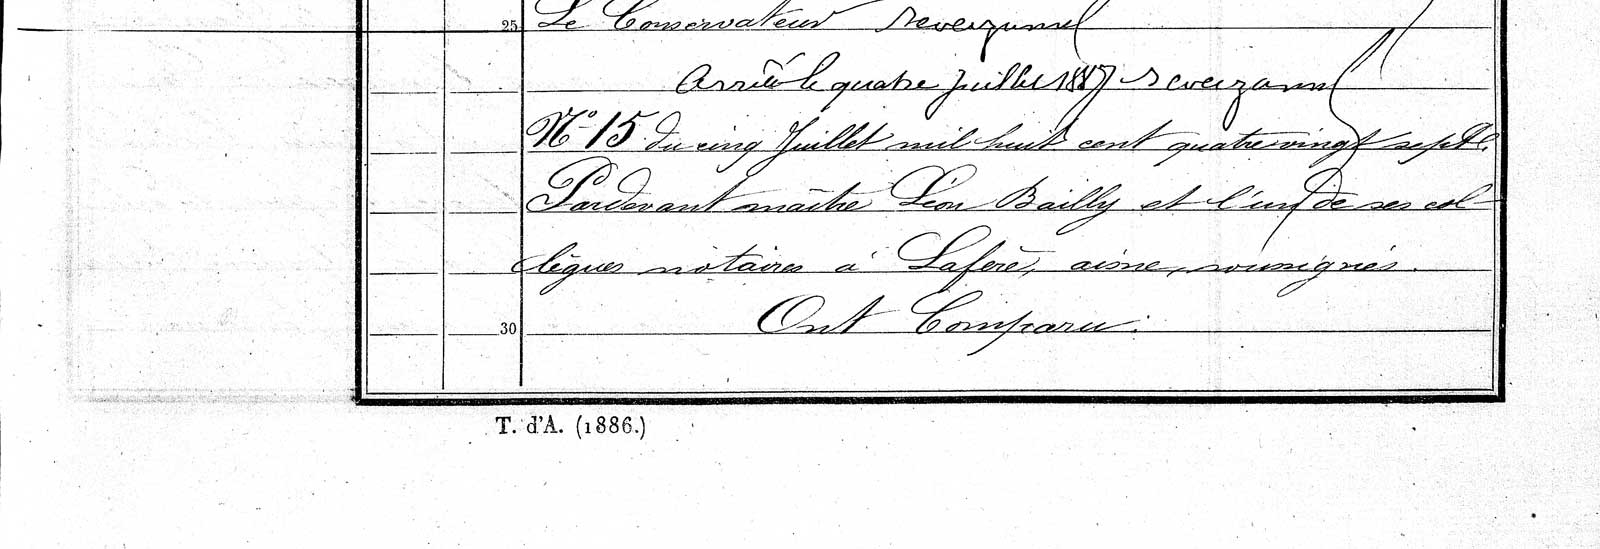 25 Le Conservateur
Arrêté le quatre Juillet 1887
N° 15 du cinq Juillet mil huit cent quatre vingt sept.
Pardevant maître Léon Bailly et l'un de ses col-
lègues notaires à Lafère, aisne, soussignés.
30 Ont Comparu:
T. d'A. (1886.)